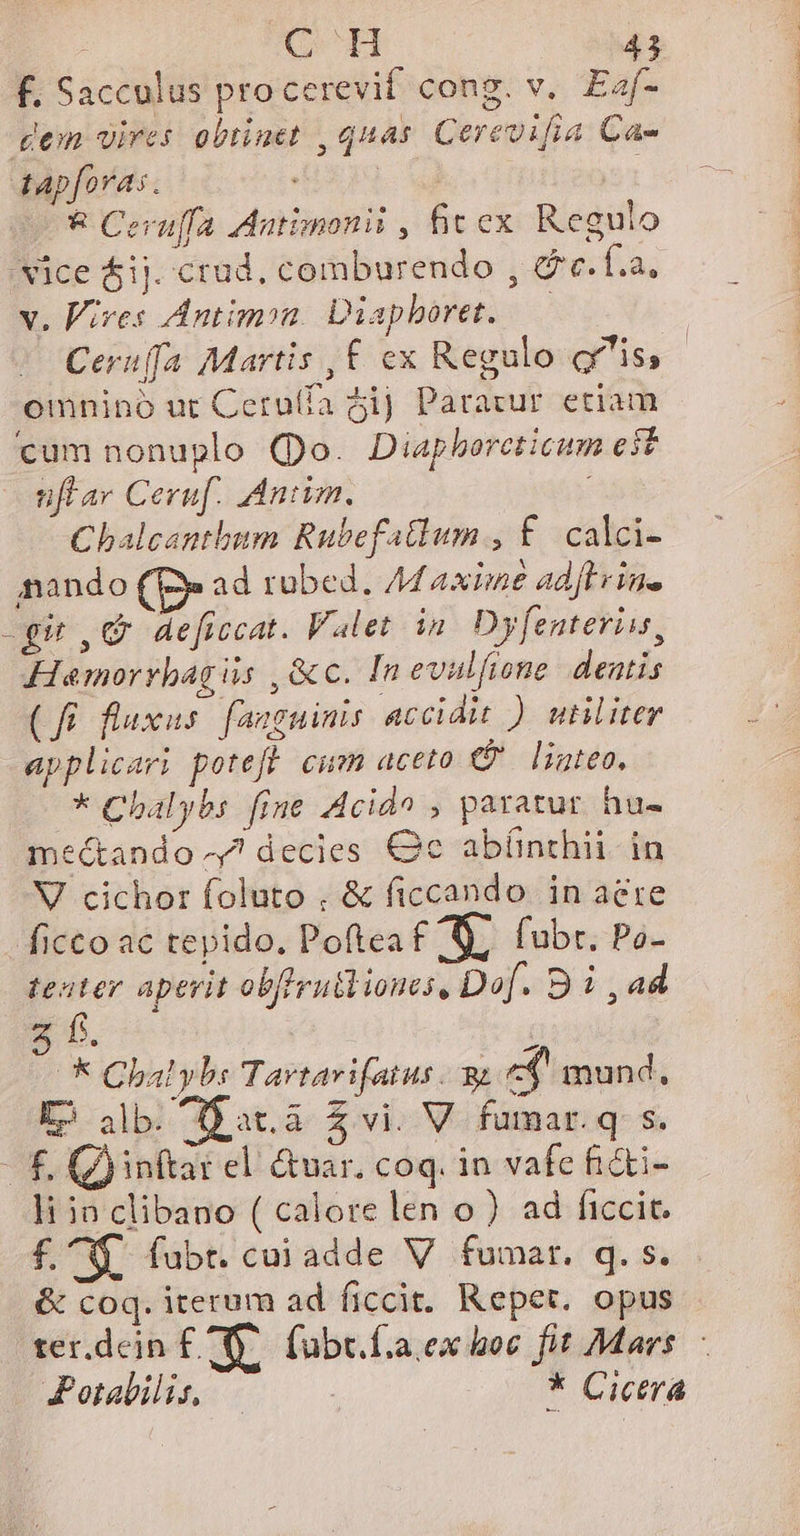 C H 43
f. Sacculus pro cereviſ cong. v. Eaſ-
dem vires obtinet , quas Cereviſia Ca-
tapſoras.
* Ceruſſa Antimonii , fit ex Regulo
vice ♁ij. crud. comburendo , &c. ſ.a.
v. Vires Antimon. Diaphoret.
Ceruſſa Martis , f ex Regulo ♂is,
omninò ut Ceruſſa ♁ij Paratur etiam
cum nonuplo 🜕o. Diaphoreticum eſt
nſtar Ceruſ. Antim.
Chalcanthum Rubefactum , f calci-
nando ad rubed. Maximè adſtrin-
git , & deſiccat. Valet in Dyſenteriis,
Hæmorrhagiis , &c. In evulſione dentis
( ſi fluxus ſanguinis accidit ) utiliter
applicari poteſt cum aceto & linteo.
* Chalybs ſine Acido , paratur hu-
mectando decies c abſinthii in
▽ cichor ſoluto , & ſiccando in aëre
ſicco ac tepido. Poſtea f ſubt. Po-
tenter aperit obſtructiones, Doſ. ℈ i , ad
ʒ ß.
* Chalybs Tartariſatus. ℞ mund.
alb. at. ā ℥ vi. ▽ fumar. q s.
f. inſtar el ctuar. coq. in vaſe ficti-
li in clibano ( calore len o ) ad ſiccit.
f. ſubt. cui adde ▽ fumar. q. s.
& coq. iterum ad ſiccit. Repet. opus
ter. dein f. ſubt. ſ.a. ex hoc fit Mars
Potabilis, * Cicera